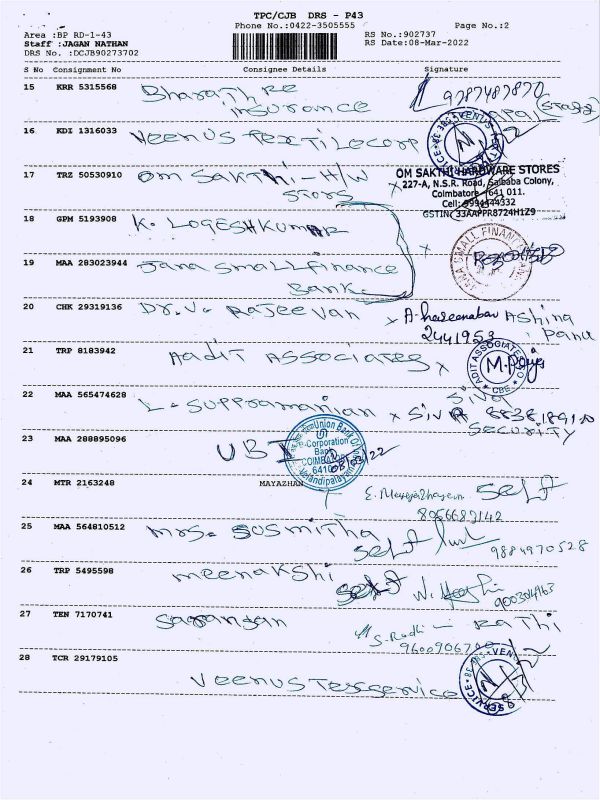 TPC/CJB DRS - P43
Phone No.:0422-3505555 Page No.:2
Area :BP RD-1-43
Staff :JAGAN NATHAN
DRS No. :DCJB90273702
RS No.:902737
RS Date:08-Mar-2022
S No Consignment No Consignee Details Signature
15 KRR 5315568 Bharath Re
insurance
9787487870
16 KDI 1316033 Veenus Textilecorp
17 TRZ 50530910 Om Sakthi - H/W
Stors
OM SAKTHI HARDWARE STORES
227-A, N.S.R. Road, Saibaba Colony,
Coimbatore - 641 011.
Cell: 9994444332
GSTIN: 33AAPPR8724H1Z9
18 GPM 5193908 K. LOGESHKUMAR
19 MAA 283023944 Jana Small finance
Bank.
20 CHK 29319136 Dr. V. Rajeevan x A. haseenabanu
2441953
21 TRP 8183942 Aadit Associates x
ADIT ASSOCIATES
CBE
22 MAA 565474628 L. Suppramanian x Siva
SECURITY
23 MAA 288895096 UBI
Union Bank Of
e-Corporation
Bank
08/03/22
24 MTR 2163248 MAYAZHAN Self
8056683142
25 MAA 564810512 Mrs. Susmitha
Self
9884970528
26 TRP 5495598 meenakshi Self
27 TEN 7170741 Sarangan
S. Radhi - Rathi
28 TCR 29179105
Veenus Tesservice